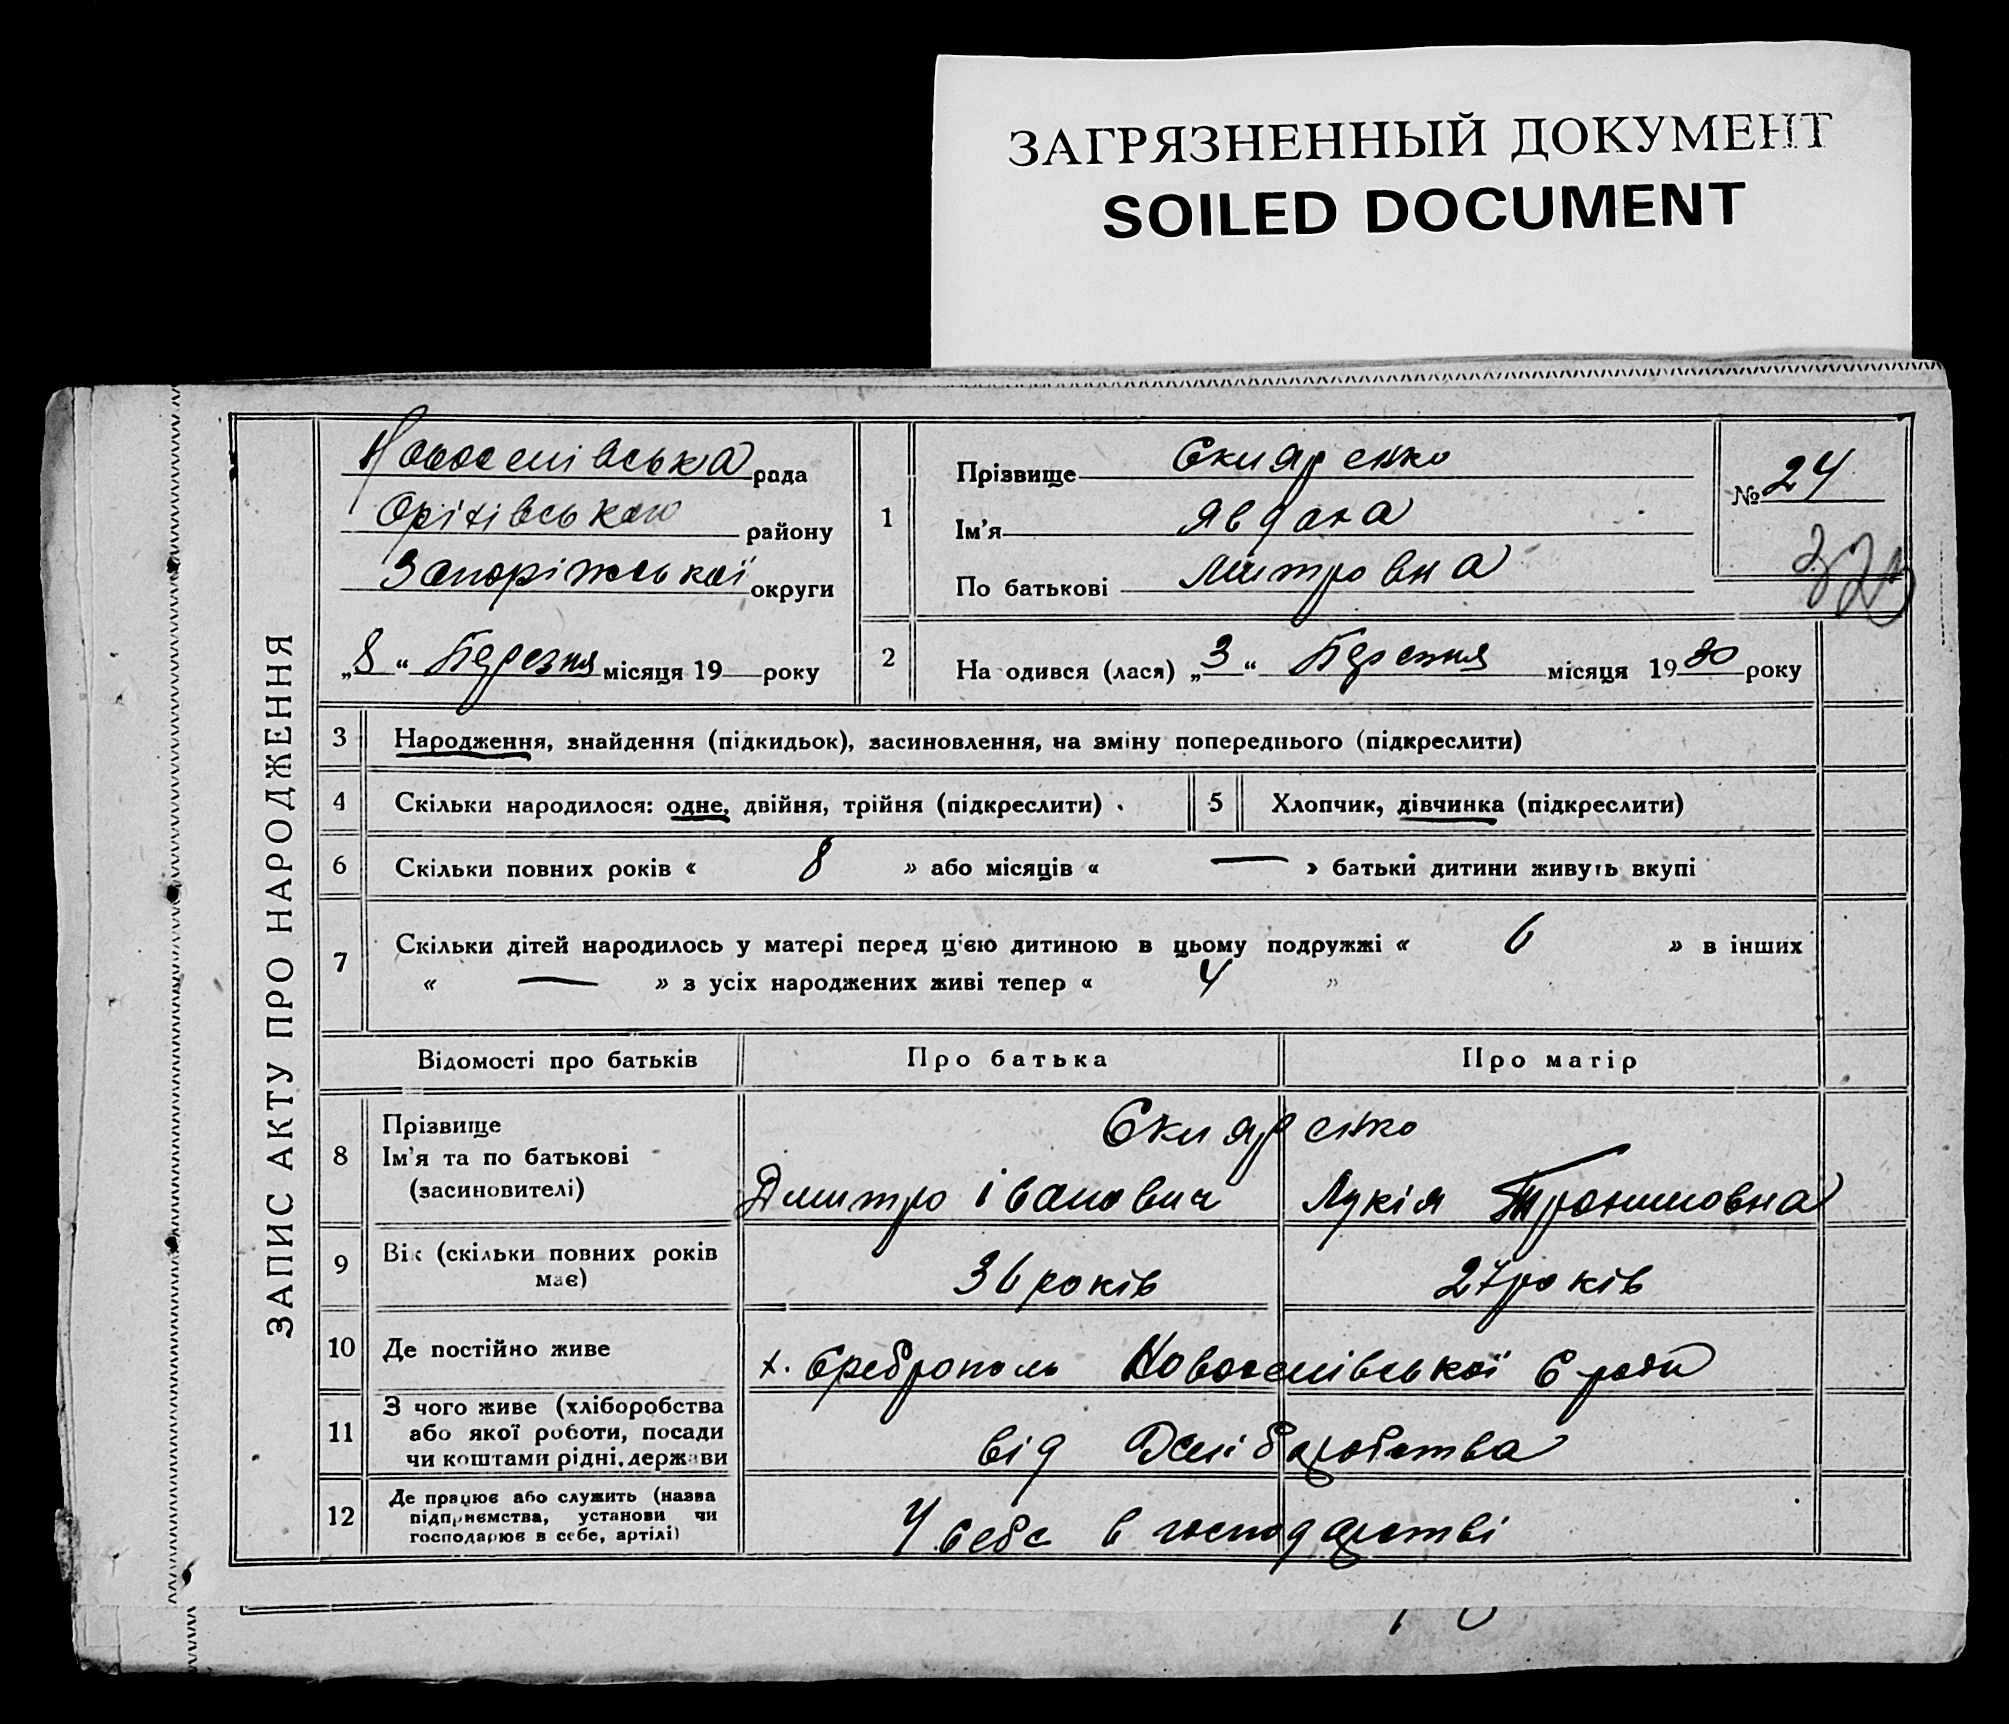 ЗАГРЯЗНЕННЫЙ ДОКУМЕНТ
SOILED DOCUMENT
ЗАПИС АКТУ ПРО НАРОДЖЕННЯ
рада
району
Запоріжської округи
„8“ Березня місяця 19 — року
1
Прізвище
Ім'я Явдоха
По батькові Митровна
№ 24
2
На одився (лася) „3“ Березня місяця 1930 року
3 Народження, знайдення (підкидьок), засиновлення, на зміну попереднього (підкреслити)
4 Скільки народилося: одне, двійня, трійня (підкреслити)
5 Хлопчик, дівчинка (підкреслити)
6 Скільки повних років « 8 » або місяців « — » батьки дитини живуть вкупі
7 Скільки дітей народилось у матері перед ц'єю дитиною в цьому подружжі « 6 » в інших
« — » з усіх народжених живі тепер « 4 »
Відомості про батьків Про батька Про матір
8 Прізвище
Ім'я та по батькові Дмитро Іванович Лукія
(засиновителі)
9 Вік (скільки повних років має) 36 років 27 років
10 Де постійно живе х.
11 З чого живе (хліборобства
або якої роботи, посади
чи коштами рідні, держави від
12 Де працює або служить (назва
підприємства, установи чи
господарює в себе, артілі) У себе в господарстві